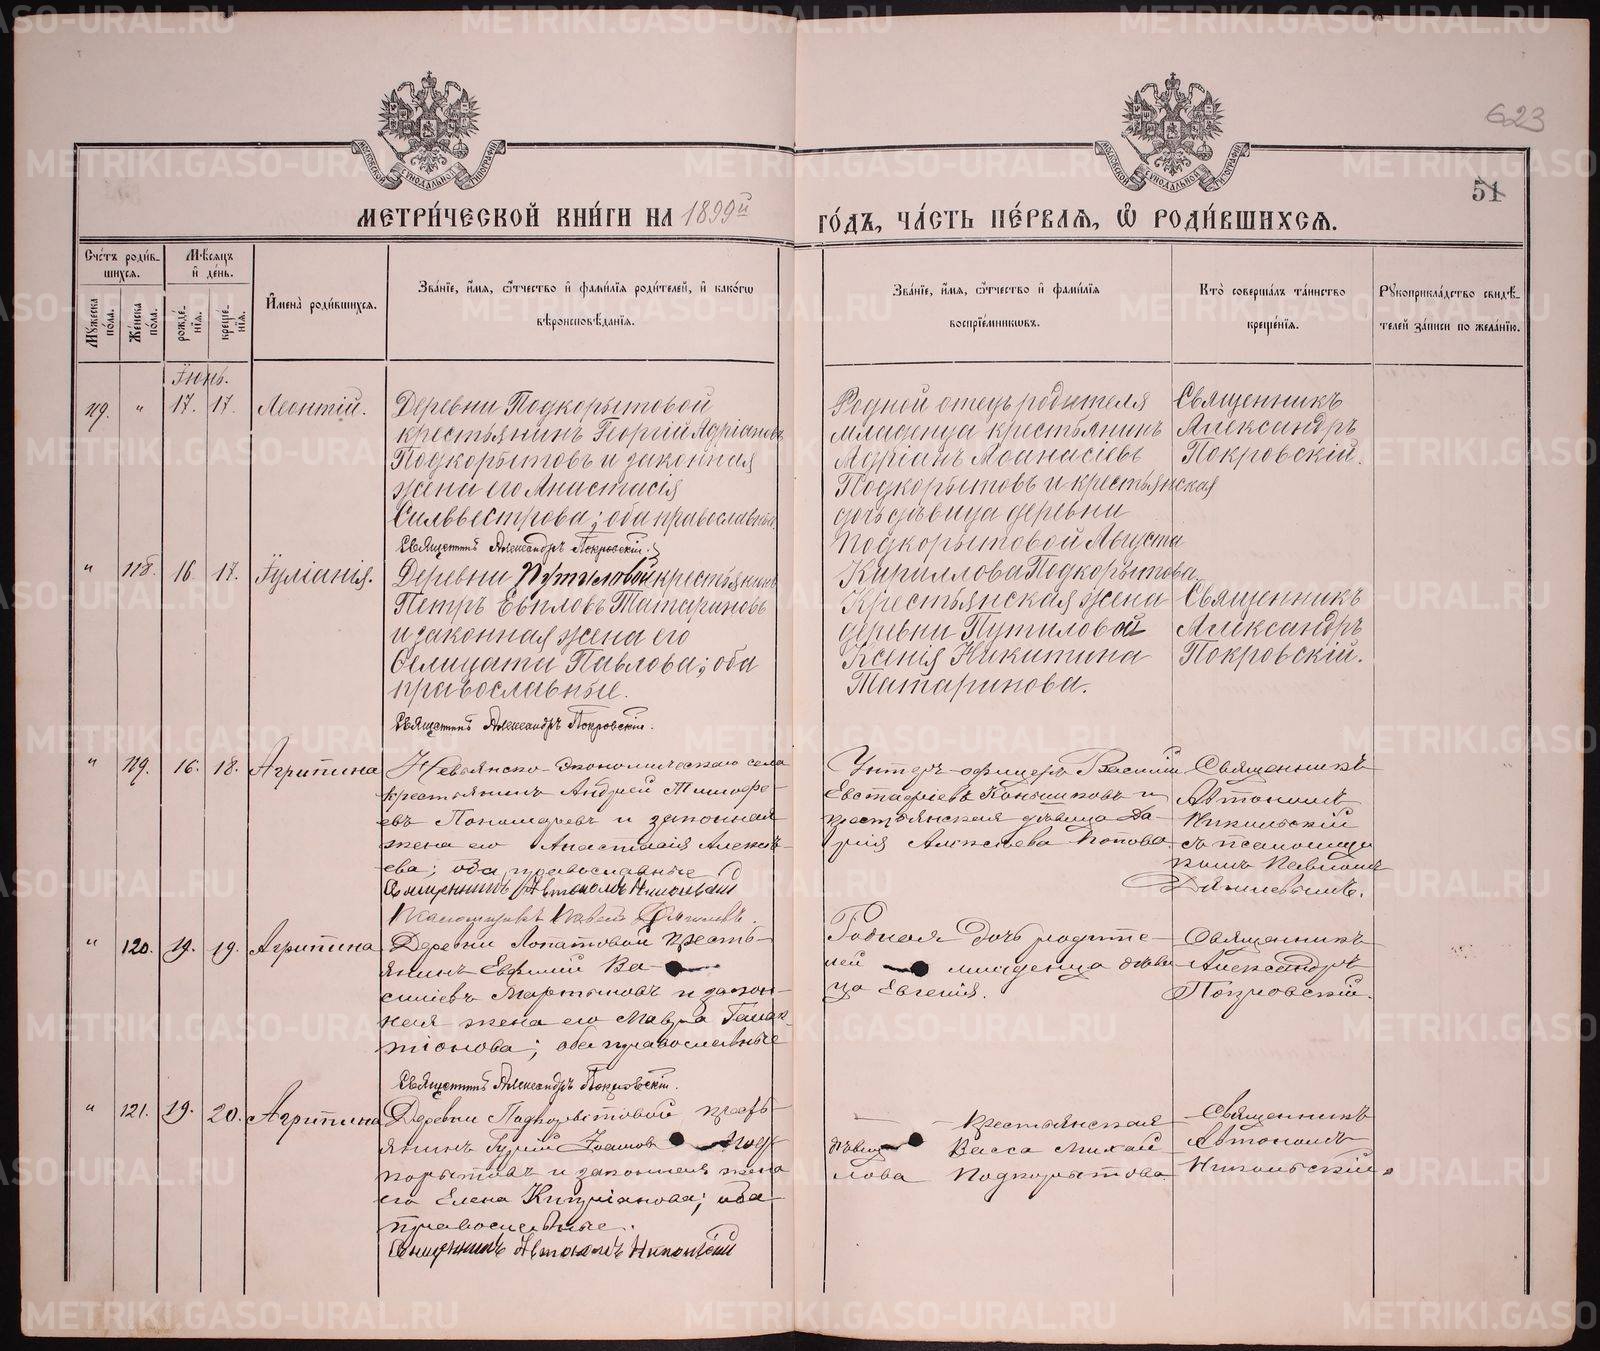 623
51
МЕТРИ́ЧЕСКОЙ КНИ́ГИ НА 1899й ГО́ДЪ, ЧА́СТЬ ПЕ́РВАЯ, Ѽ РОДИ́ВШИХСЯ.
Сче́тъ роди́вшихся.
Му́жеска по́ла.
Же́нска по́ла.
Мѣ́сяцъ и де́нь.
рожде́нїя.
креще́нїя.
Имена̀ роди́вшихся.
Зва́нїе, и́мя, ѻ́тчество и фами́лїя роди́телей, и како́гѡ
вѣроисповѣ́данїя.
Зва́нїе, и́мя, ѻ́тчество и фами́лїя
воспрїе́мникѡвъ.
Кто̀ соверша́лъ та́инство
креще́нїя.
Рꙋкоприкла́дство свидѣ́телей за́писи по жела́нїю.
Іюнь.
119. " 17. 17. Леонтій.
Деревни Подкорытовой
крестьянинъ Георгій Адріановъ
Подкорытовъ и законная
жена его Анастасія
Сильвестрова; оба православные.
Священникъ Александръ Покровскій.
Родной отецъ родителя
младенца крестьянинъ
Адріанъ Аѳанасіевъ
Подкорытовъ и крестьянская
дочь дѣвица деревни
Подкорытовой Августа
Кириллова Подкорытова.
Священникъ
Александръ
Покровскій.
" 118. 16. 17. Іуліанія.
Деревни Путиловой крестьянинъ
Петръ Татариновъ
и законная жена его
Фелицата Павлова; оба
православные.
Священникъ Александръ Покровскій.
Крестьянская жена
деревни Путиловой
Ксенія Никитина
Татаринова.
Священникъ
Александръ
Покровскій.
" 119. 16. 18. Агрипина
Невьянско-Экономическаго села
крестьянинъ Андрей Тимофе-
евъ Пономаревъ и законная
жена его Анастасія Алексѣ-
ева; оба православные
Священникъ Автономъ Никольскій
Псаломщикъ Павелъ
Унтеръ-офицеръ Василій
Евстафіевъ и
крестьянская дѣвица Да-
рія Алексѣева Попова
Священникъ
Автономъ
Никольскій
съ псаломщи
комъ Павломъ
" 120. 19. 19. Агрипина
Деревни Лопатовой кресть-
янинъ Евфимій Ва-
силіевъ Мартыновъ и закон-
ная жена его Мавра Галак-
тіонова; оба православные
Священникъ Александръ Покровскій.
Родная дочь родите-
лей младенца дѣви
ца Евгенія.
Священникъ
Александръ
Покровскій.
" 121. 19. 20. Агрипина
Деревни Подкорытовой кресть-
янинъ Гурій Іоанновъ Под-
корытовъ и законная жена
его Елена Кипріанова; оба
православные.
Священникъ Автономъ Никольскій
Крестьянская
дѣвица Васса Михай-
лова Подкорытова
Священникъ
Автономъ
Никольскій.
METRIKI.GASO-URAL.RU